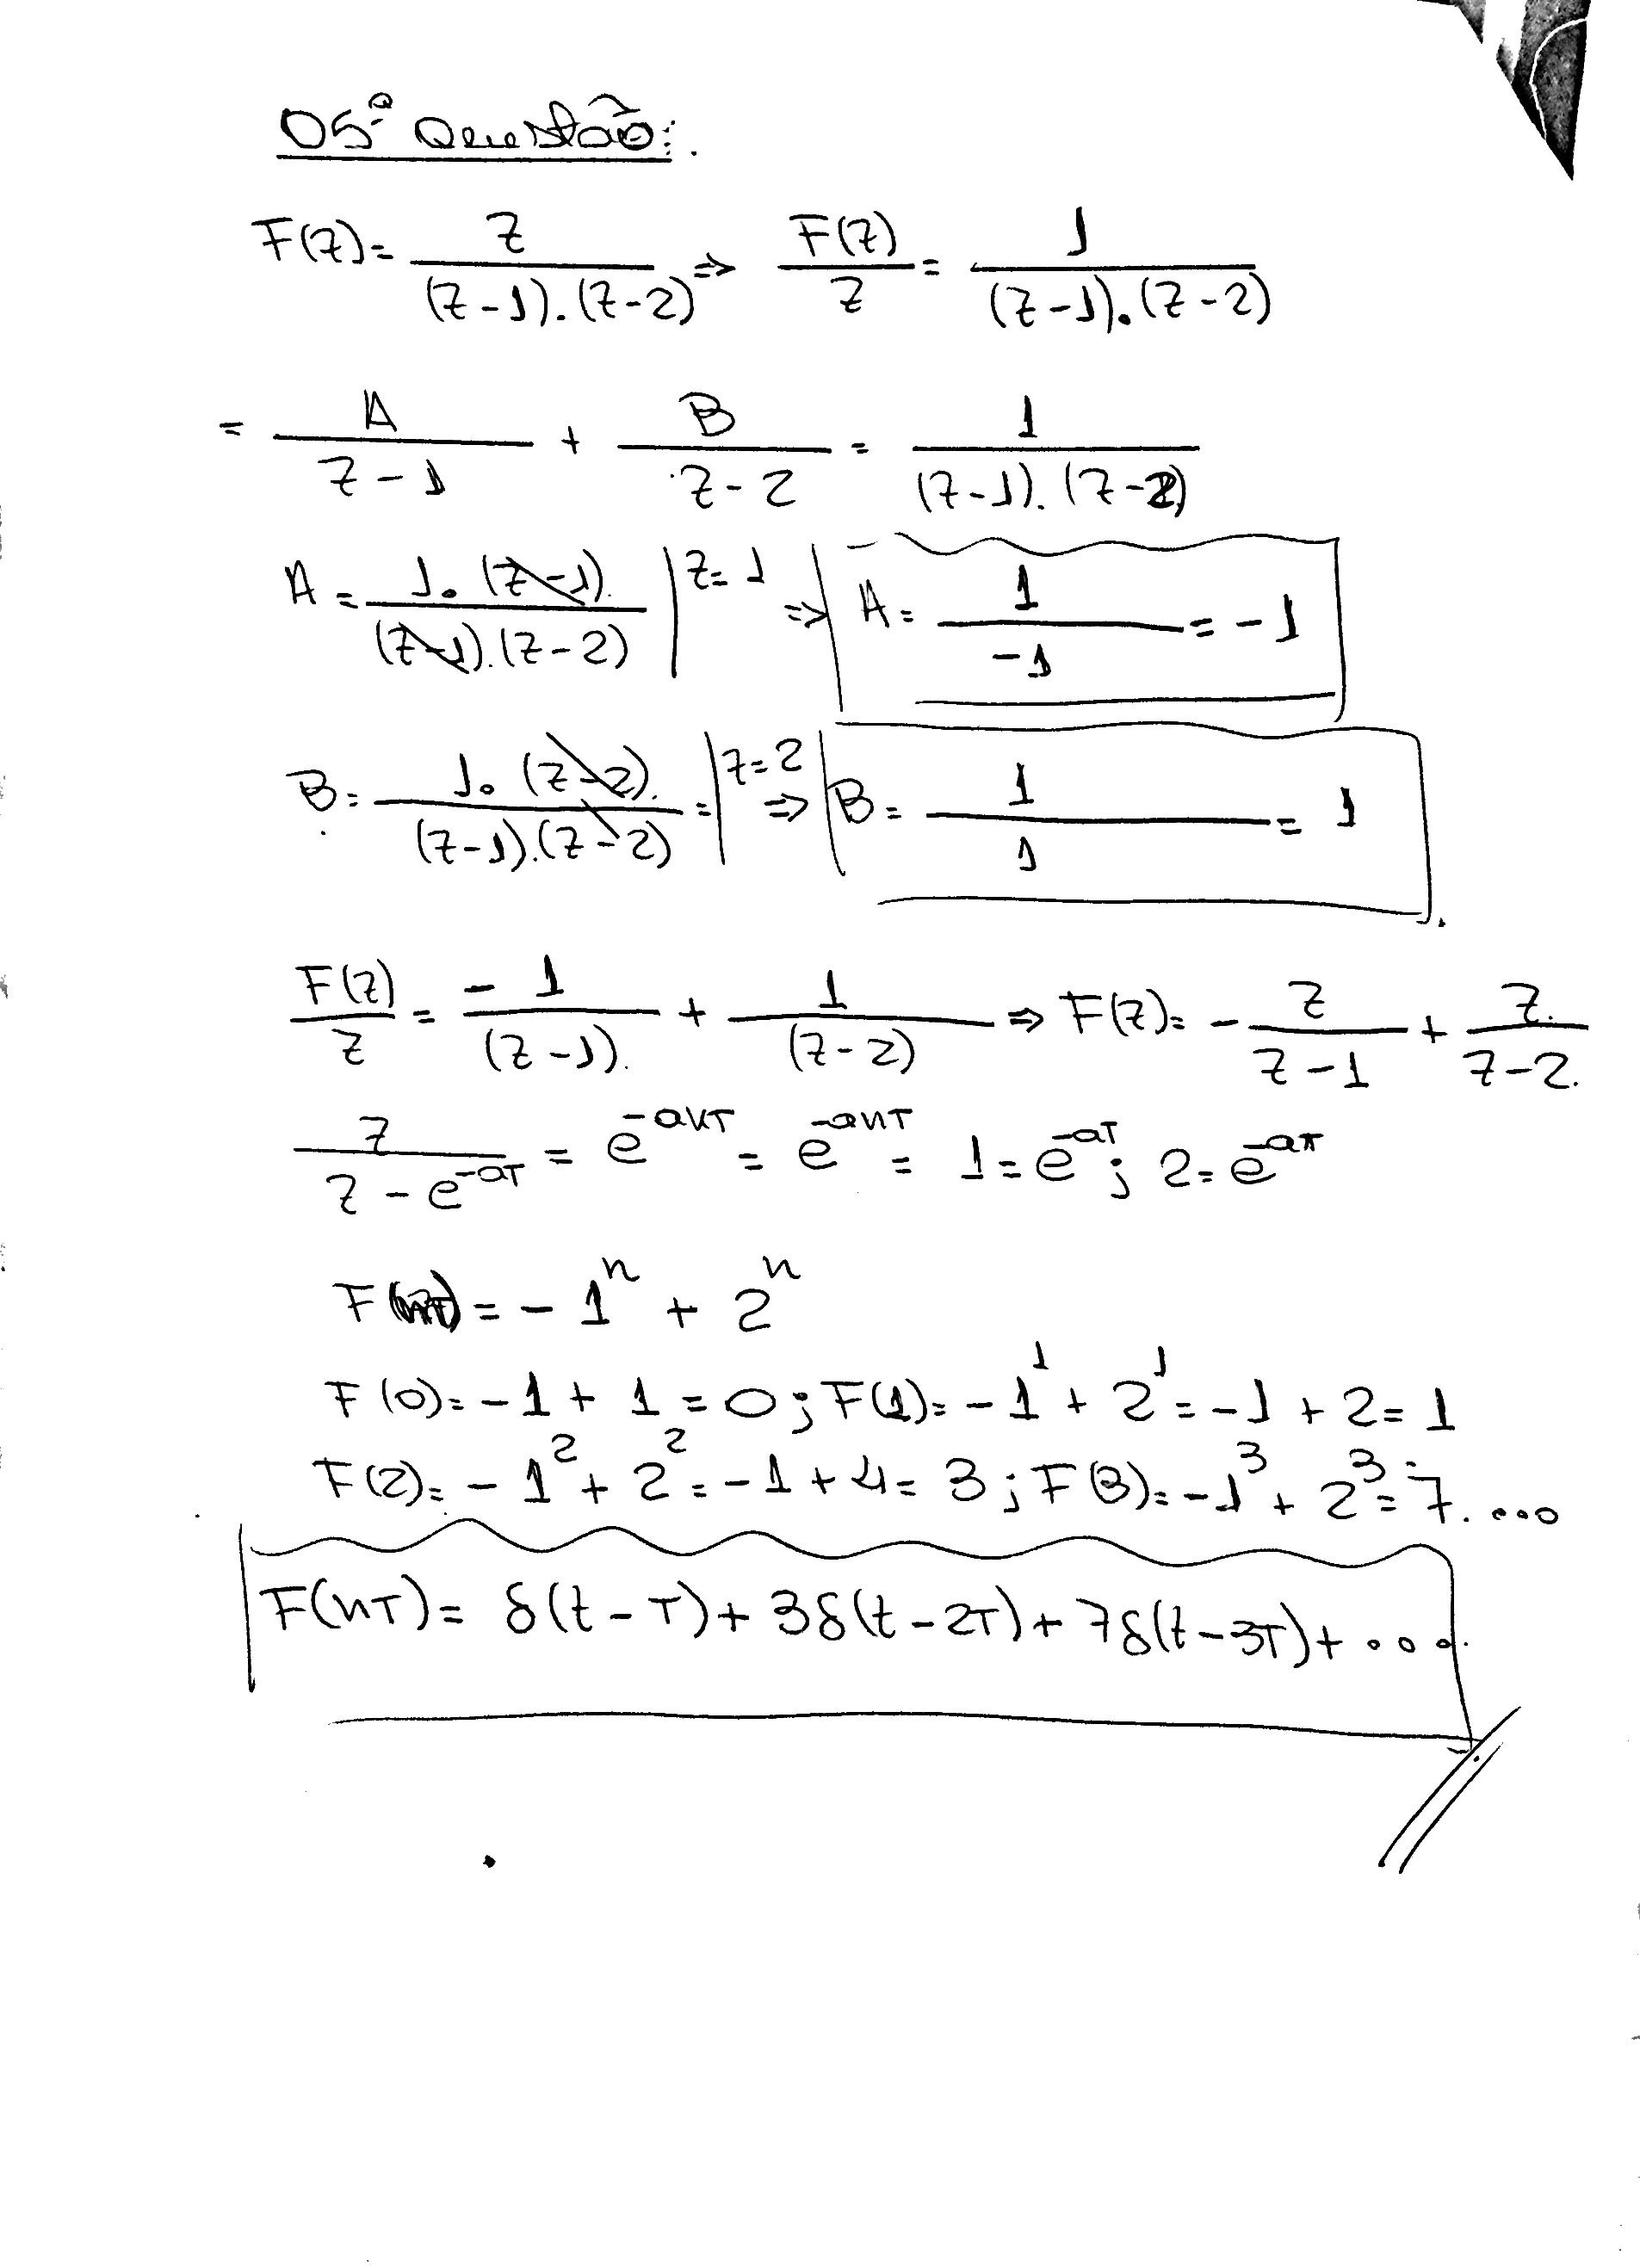 05ª Questão:.
F(z) = z / (z-1).(z-2) ⇒ F(z) / z = 1 / (z-1).(z-2)
= A / z-1 + B / z-2 = 1 / (z-1).(z-2)
A = 1.(z-1) / (z-1).(z-2) | z=1 ⇒ A = 1 / -1 = -1
B = 1.(z-2) / (z-1).(z-2) = | z=2 ⇒ B = 1 / 1 = 1
F(z) / z = -1 / (z-1) + 1 / (z-2) ⇒ F(z) = - z / z-1 + z / z-2.
z / z - e^-aT = e^-akT = e^-anT = 1 = e^-aT ; 2 = e^-aT
F(nT) = - 1^n + 2^n
F(0) = -1 + 1 = 0 ; F(1) = -1^1 + 2^1 = -1 + 2 = 1
F(2) = -1^2 + 2^2 = -1 + 4 = 3 ; F(3) = -1^3 + 2^3 = 7. ...
F(nT) = δ(t-T) + 3δ(t-2T) + 7δ(t-3T) + ...